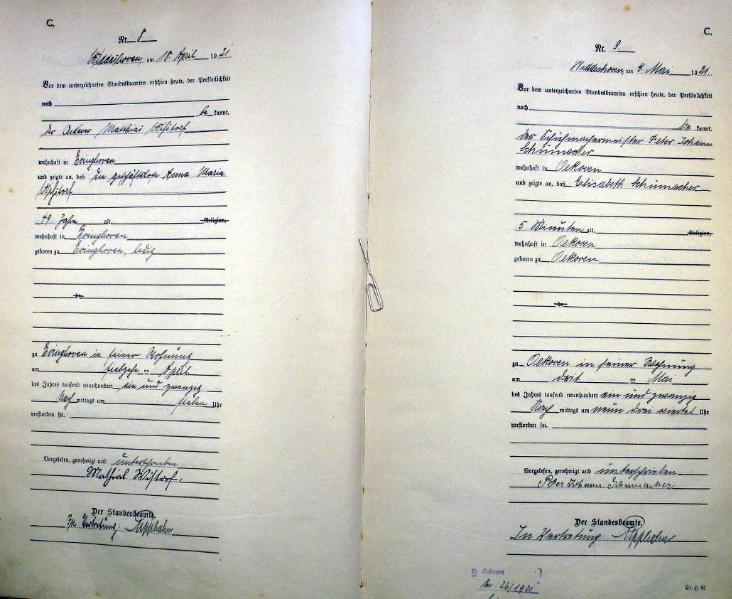 C.
Nr. 8
am 18. April 1921.
Vor dem unterzeichneten Standesbeamten erschien heute, der Persönlichkeit
nach
be kannt,
der Ackerer Matthias
wohnhaft in Evinghoven
und zeigte an, daß die geschäftslose Anna Maria
49 Jahre alt, Religion,
wohnhaft in Evinghoven
geboren zu Evinghoven, ledig
zu Evinghoven in seiner Wohnung
am April
des Jahres tausend neunhundert ein und zwanzig
Nach mittags um sieben Uhr
verstorben sei.
Vorgelesen, genehmigt und unterschrieben
Der Standesbeamte.
In Vertretung:
C.
Nr. 9
Widdeshoven, am 4. Mai 1921.
Vor dem unterzeichneten Standesbeamten erschien heute, der Persönlichkeit
nach
be kannt,
der Schuhmachermeister Peter Johann
Schumacher
wohnhaft in Oekoven
und zeigte an, daß Elisabeth Schumacher
5 Minuten alt, Religion,
wohnhaft in Oekoven
geboren zu Oekoven
zu Oekoven in seiner Wohnung
am Mai
des Jahres tausend neunhundert ein und zwanzig
Nach mittags um neun drei viertel Uhr
verstorben sei.
Vorgelesen, genehmigt und unterschrieben
Peter Johann Schumacher
Der Standesbeamte.
In Vertretung
Nr. 26/1921